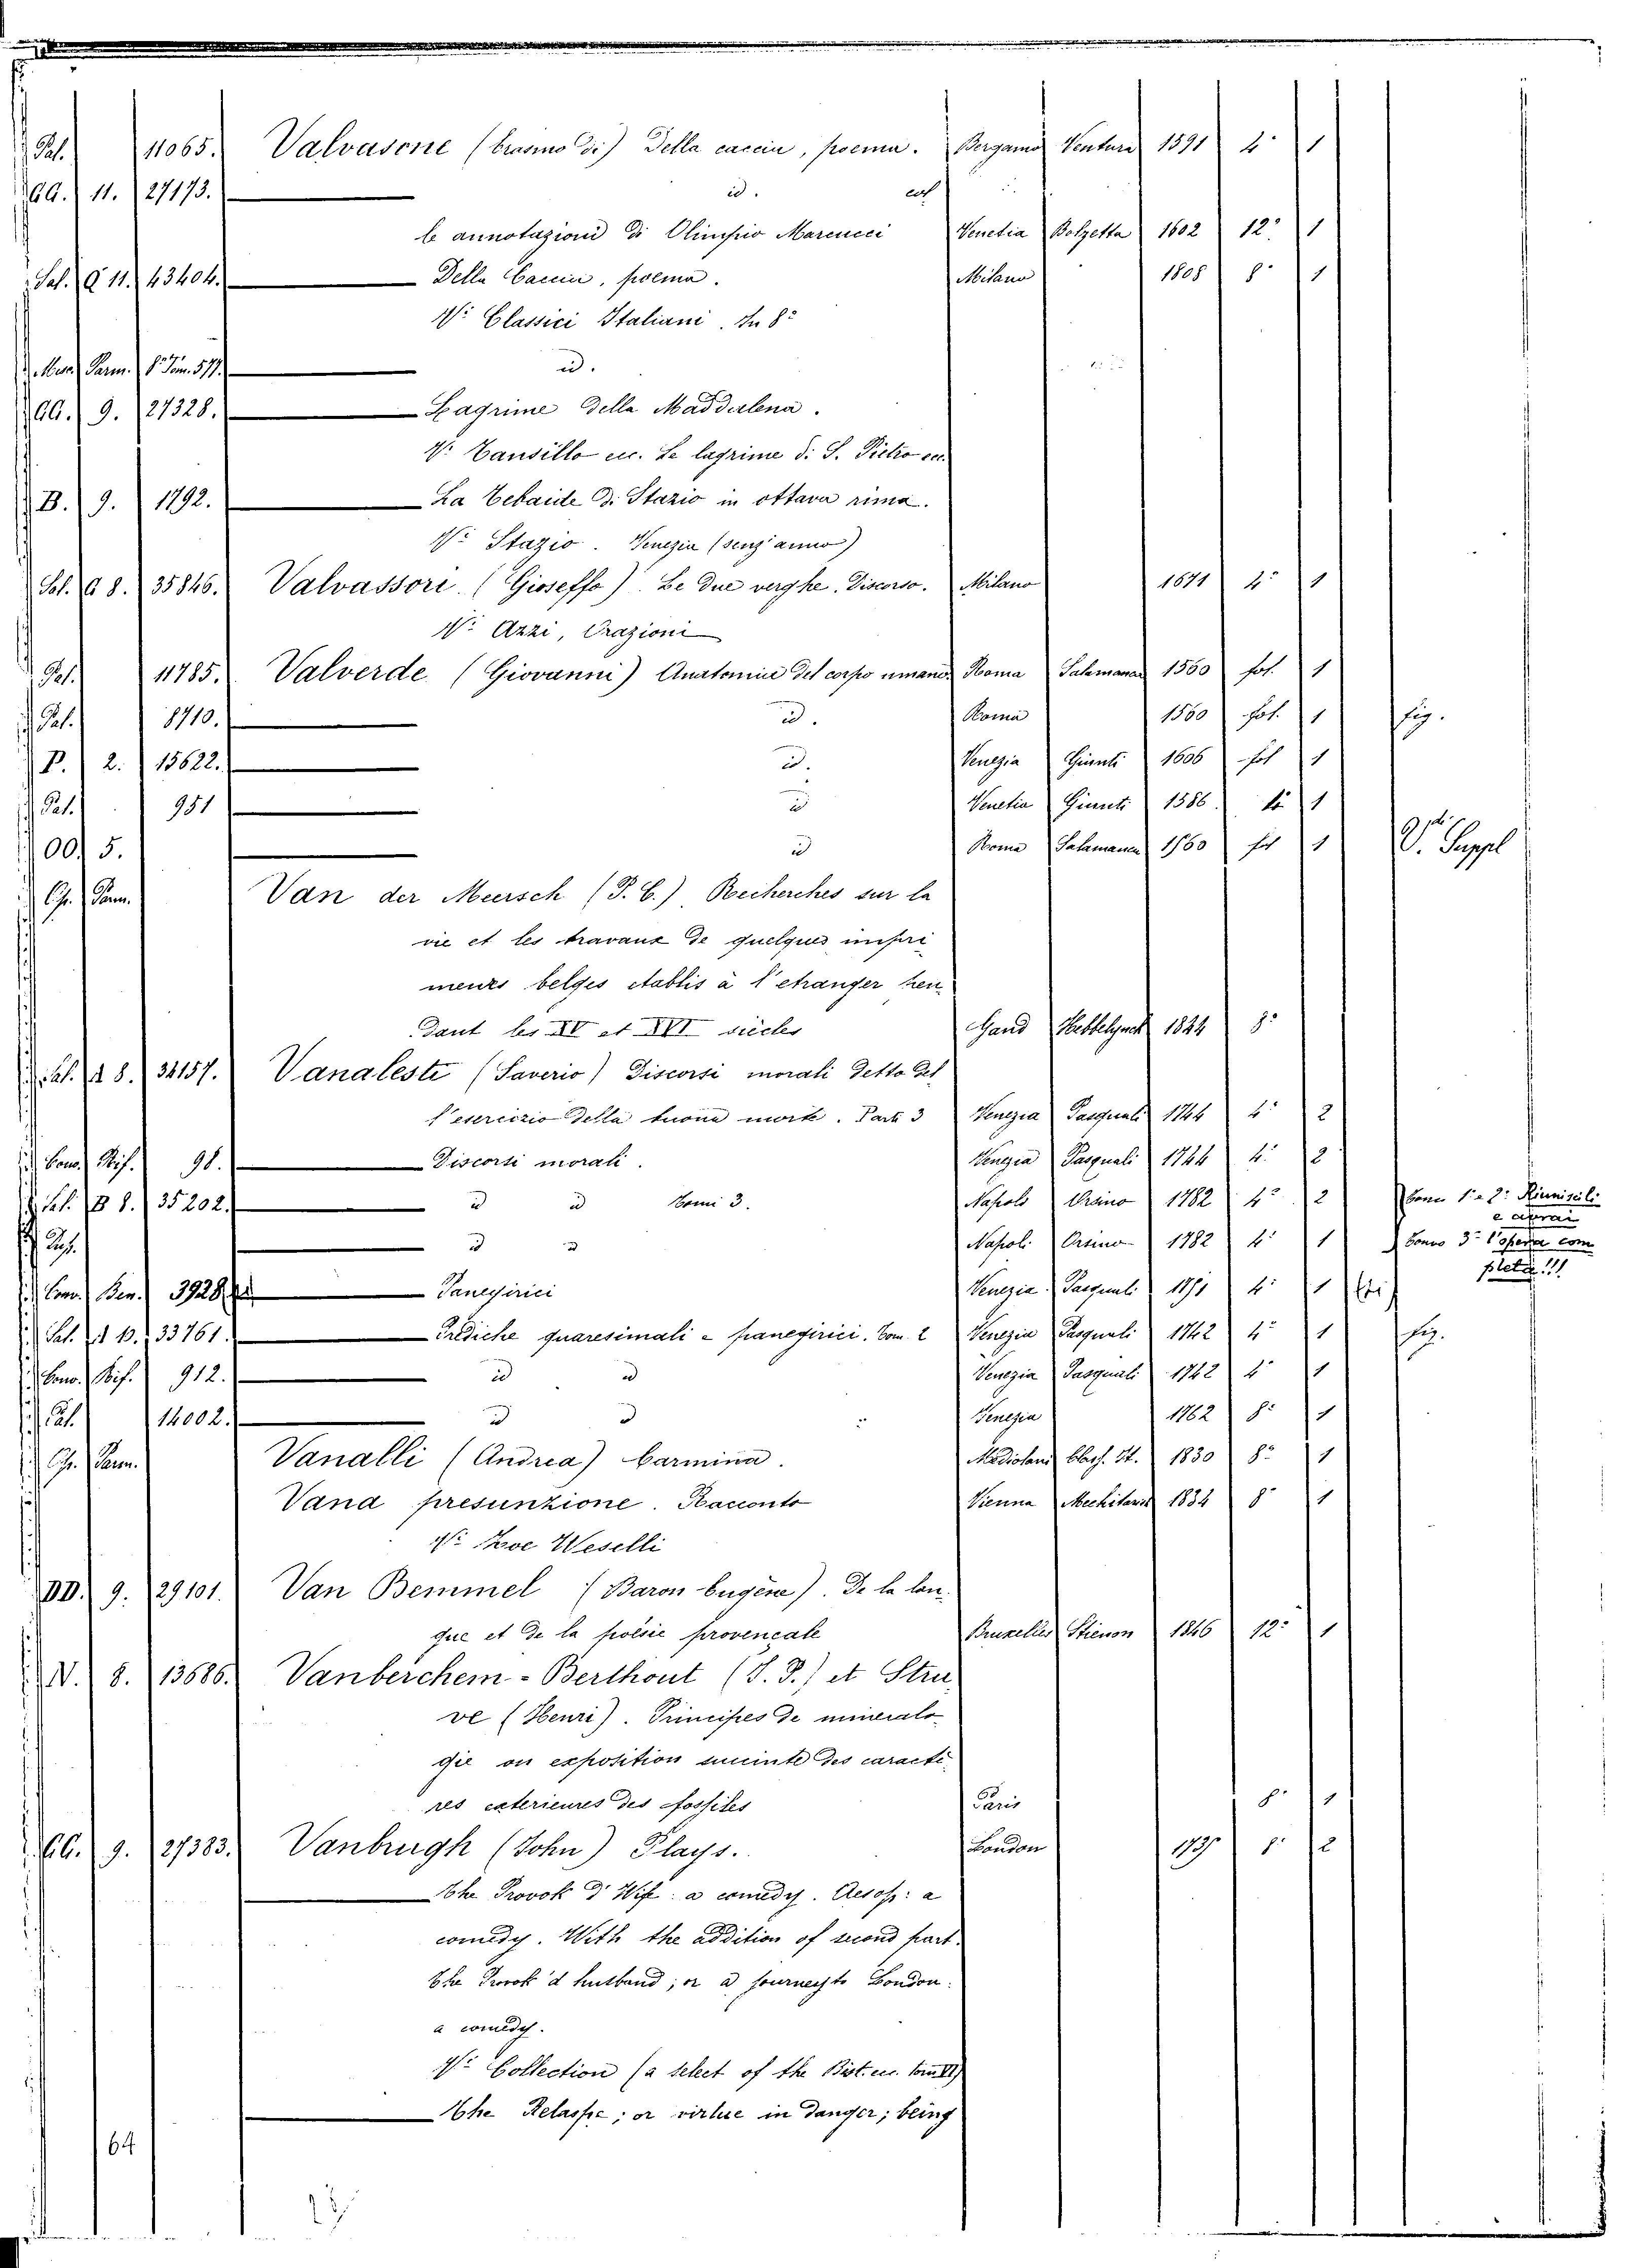 Pal. 11065. Valvasone (Erasmo di) Della caccia, poema. Bergamo Ventura 1591 4° 1
GG. 11. 27173. id. col
le annotazioni di Olimpio Marcucci Venetia Bolzetta 1602 12° 1
Sal. Q 11. 43404. Della Caccia, poema. Milano 1808 8° 1
V: Classici Italiani. In 8°
Parm. 8° Tom. 577. id.
GG. 9. 27328. Lagrime della Maddalena.
V: Tansillo ec. Le lagrime di S. Pietro ec.
B. 9. 1792. La Tebaide di Stazio in ottava rima.
V: Stazio. Venezia (senz'anno)
Sal. G 8. 35846. Valvassori (Gioseffo). Le due verghe. Discorso. Milano 1671 4° 1
V: Azzi, Orazioni
Pal. 11785. Valverde (Giovanni) Anatomia del corpo umano Roma Salamanca 1560 fol. 1
Pal. 8710. id. Roma 1560 fol. 1 fig.
P. 2. 15622. id. Venezia Giunti 1606 fol 1
Pal. 951 id Venetia Giunti 1586 1
OO. 5. id Roma Salamanca 1560 fol 1 V. Suppl
Parm. Van der Meersch (P. C.) Recherches sur la
vie et les travaux de quelques impri
meurs belges établis à l'etranger pen
dant les XV et XVI siècles Gand Hebbelynck 1844 8°
Sal. A 8. 34157. Vanalesti (Saverio) Discorsi morali detto del
l'esercizio della buona morte. Parti 3 Venezia Pasquali 1744 4° 2
Conv. Rif. 98. Discorsi morali. Venezia Pasquali 1744 4° 2
Sal. B 8. 35202. id id Tomi 3. Napoli Orsino 1782 4° 2 Tomi 1° e 2° Riunisceli
id id Napoli Orsino 1782 4° 1 e avrai
Tomo 3° l'opera com
pleta!!!
Conv. Ben. 3928 Panegirici Venezia Pasquali 4° 1
Sal. A 10. 33761. Prediche quaresimali e panegirici. Tom. 2 Venezia Pasquali 1742 4° 1 fig.
Conv. Rif. 912. id id Venezia Pasquali 1742 4° 1
Pal. 14002. id id Venezia 1762 8° 1
Parm. Vanalli (Andrea) Carmina. Mediolani Class. It. 1830 8° 1
Vana presunzione. Racconto Vienna Mechitaris 1834 8° 1
V: Weselli
DD. 9. 29101. Van Bemmel (Baron Eugène). De la lan
gue et de la poésie provencale Bruxelles Stienon 1846 12° 1
V. 8. 13686. Vanberchem-Berthout (J. P.) et Stru
ve (Henri). Principes de mineralo
gie ou exposition succinte des caractè
res exterieures des fossiles Paris 8° 1
9. 27383. Vanbrugh (John) Plays. London 8° 2
The Provok'd Wife: a comedy. Aesop: a
comedy. With the addition of second part.
The Provok'd husband; or a journey to London:
a comedy.
V: Collection (a select of the Brit. ec. tom II)
The Relapse; or virtue in danger; being
64